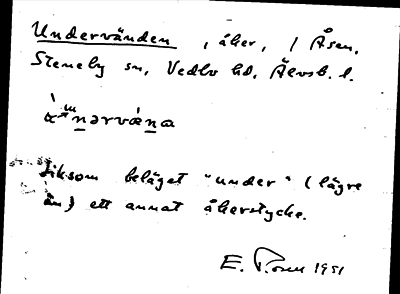 Undervänden , åker, i Åsen,
Steneby sn, Vedbo hd, Älvsb. l.
liksom beläget "under" (lägre
än) ett annat åkerstycke.
E. Rosen 1951